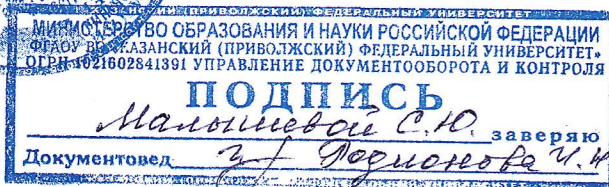 МИНИСТЕРСТВО ОБРАЗОВАНИЯ И НАУКИ РОССИЙСКОЙ ФЕДЕРАЦИИ
ФГАОУ ВО «КАЗАНСКИЙ (ПРИВОЛЖСКИЙ) ФЕДЕРАЛЬНЫЙ УНИВЕРСИТЕТ»
ОГРН 1021602841391 УПРАВЛЕНИЕ ДОКУМЕНТООБОРОТА И КОНТРОЛЯ
ПОДПИСЬ
Малышевой С.Ю. заверяю
Документовед Родионова